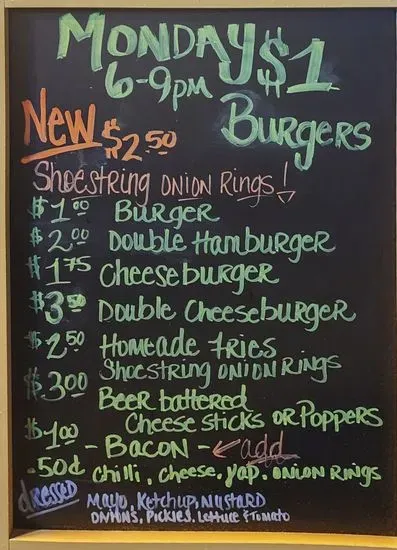 MONDAY $1
6-9pm BURGERS
NEW $2.50
Shoestring ONION RINGS!
$1.00 BURGER
$2.00 Double Hamburger
$1.75 Cheeseburger
$3.50 Double Cheeseburger
$2.50 Homeade fries
Shoestring ONION RINGS
$3.00 Beer battered
Cheese sticks or Poppers
$1.00 - BACON - ← add
.50¢ Chilli, cheese, Jap, onion RINGS
dressed MAYO, Ketchup, MUSTARD
ONIONS, PICKLES, Lettuce & Tomato